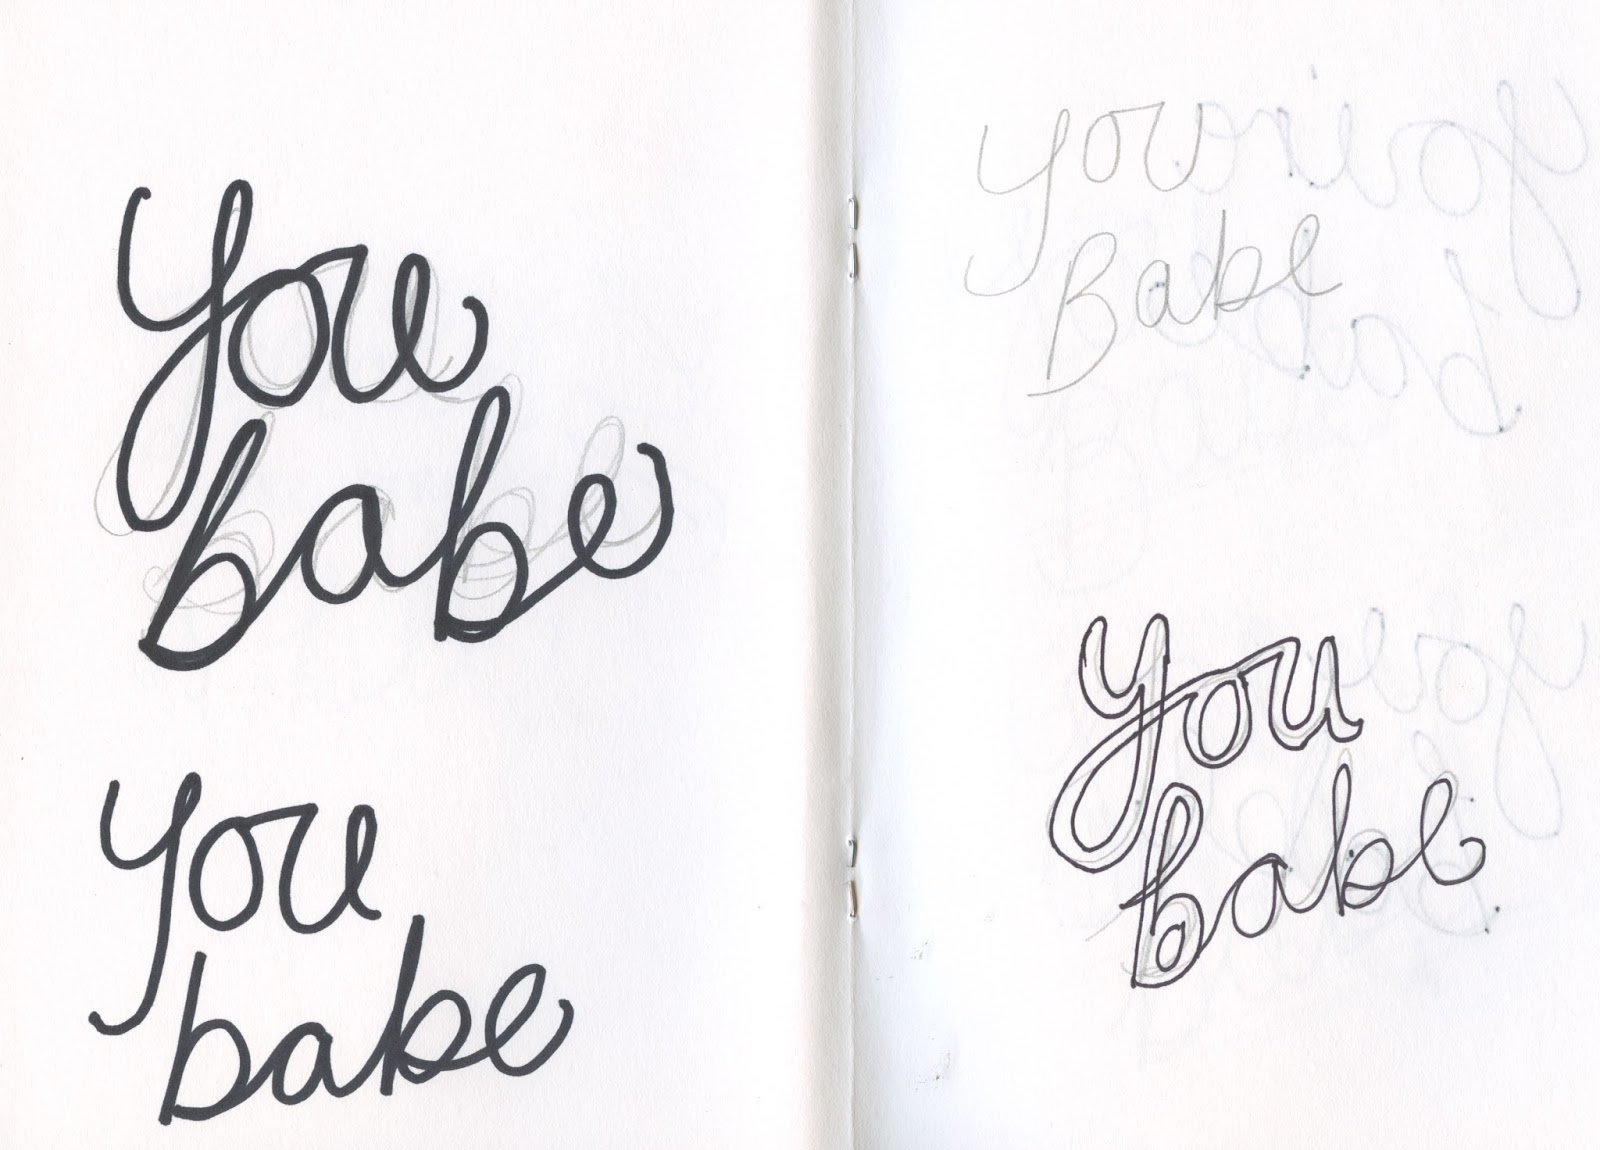 you
babe
you
babe
you
Babe
you
babe